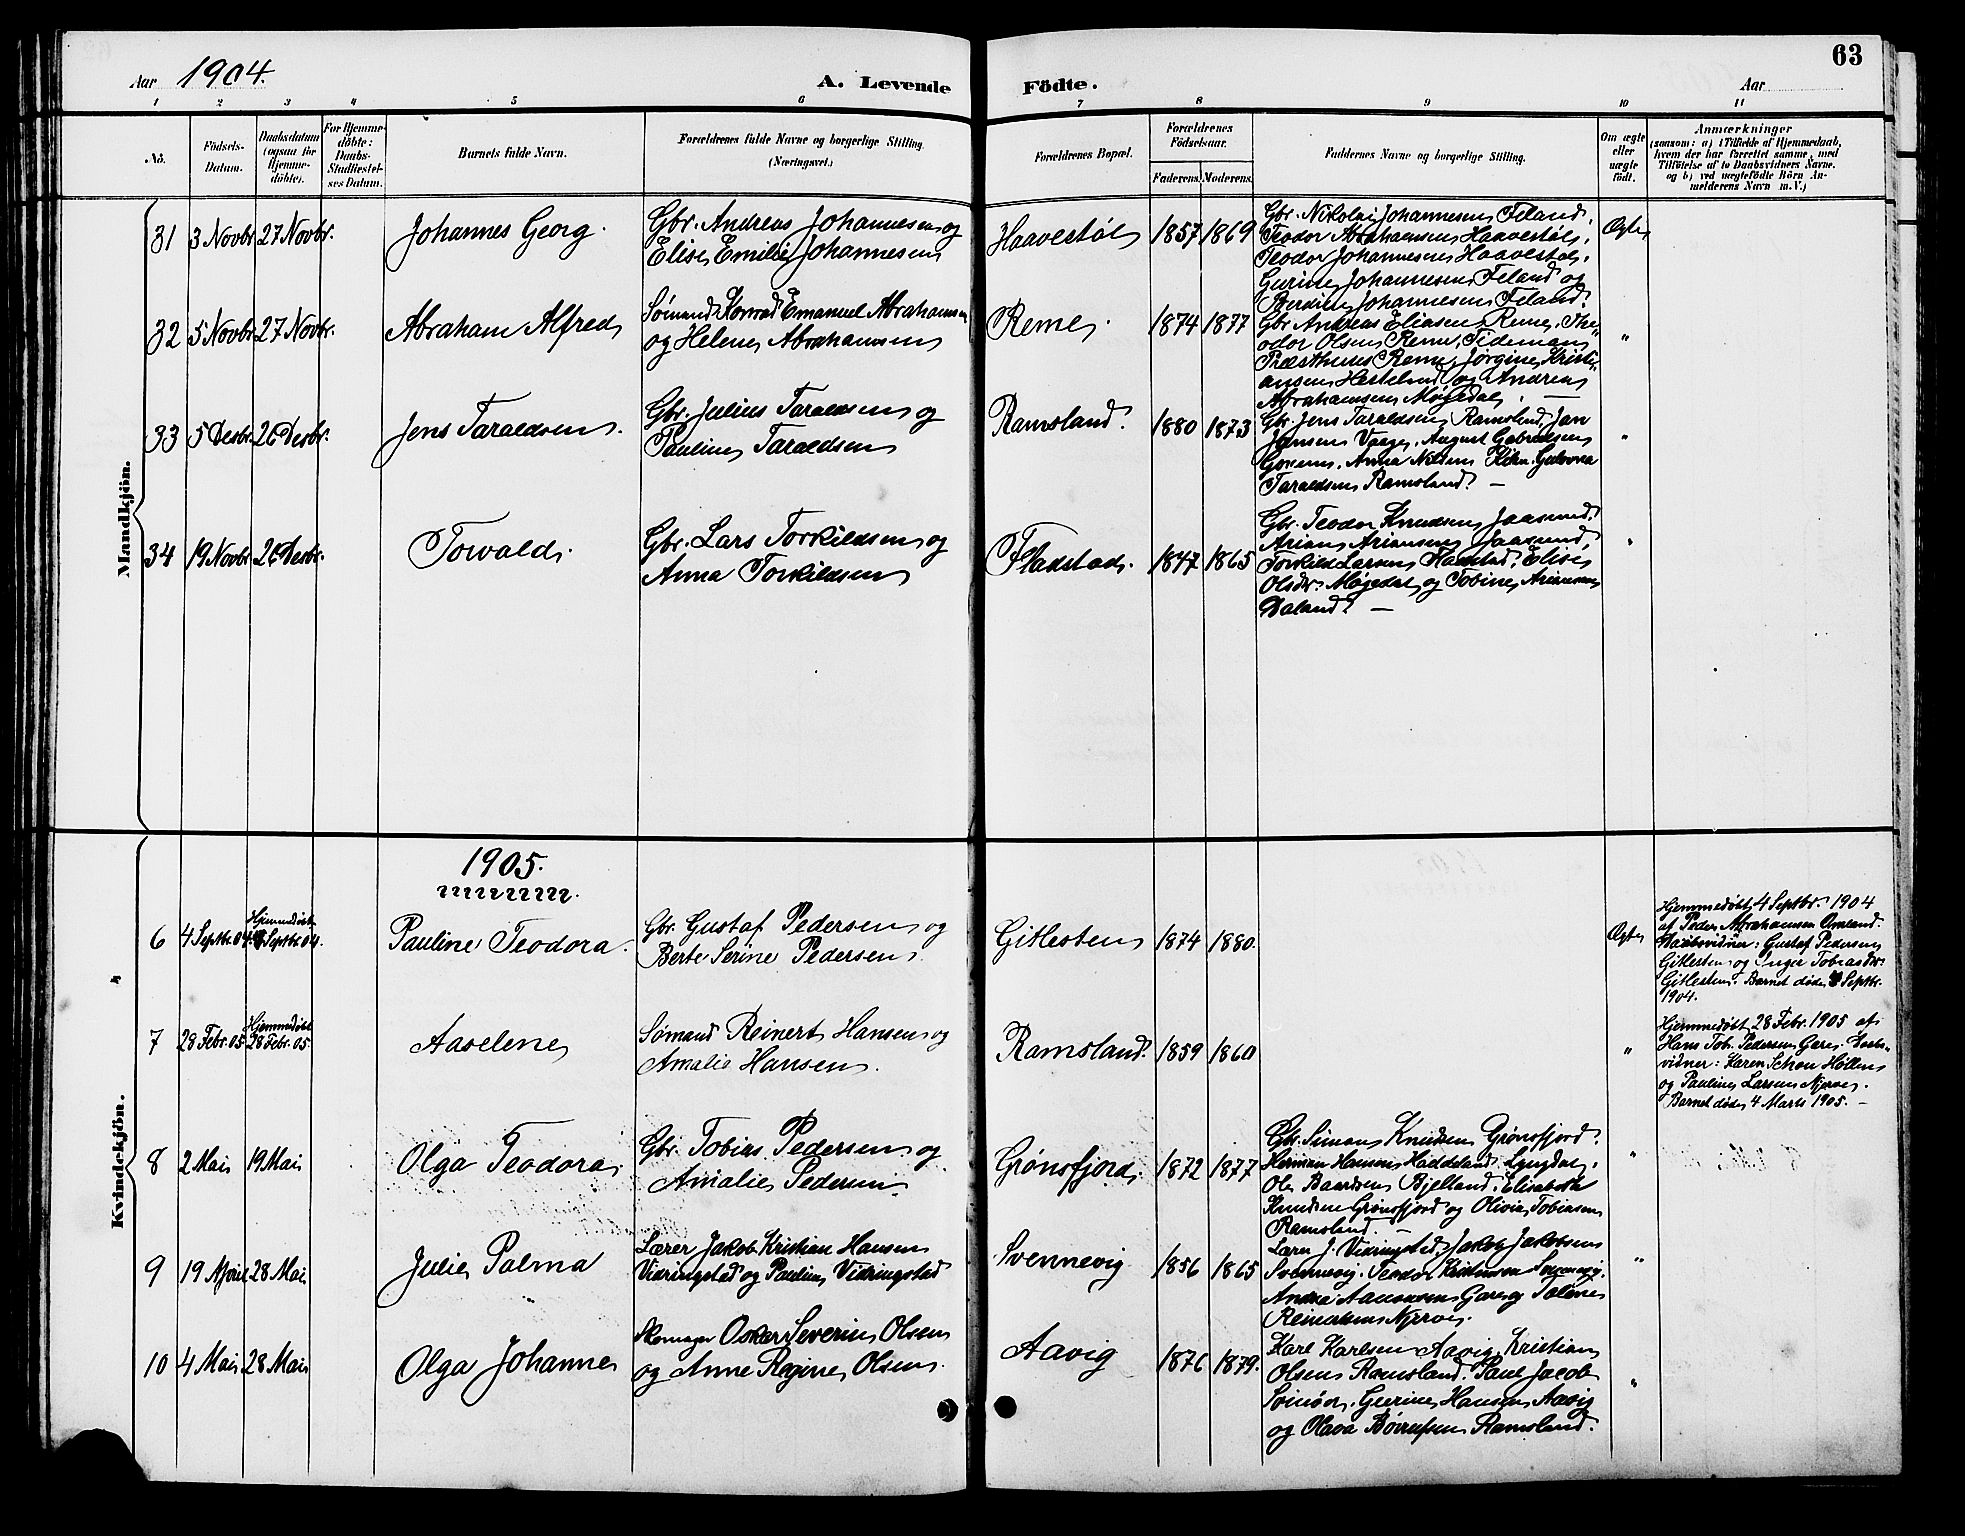 63
Aar 1904.
A. Levende Födte.
Aar
1 2 3 4 5 6 7 8 9 10 11
No.
Födsels-
Datum.
Daabsdatum
(ogsaa for
Hjemme-
döbte).
For Hjemme-
döbte:
Daabs-
Stadfæstel-
ses Datum.
Barnets fulde Navn.
Forældrenes fulde Navne og borgerlige Stilling.
(Næringsvei.)
Forældrenes Bopæl.
Forældrenes
Födselsaar.
Faderens. Moderens.
Faddernes Navne og borgerlige Stilling.
Om ægte
eller
uægte
födt.
Anmærkninger
(saasom: a) i Tilfælde af Hjemmedaab,
hvem der har forrettet samme, med
Tilföielse af to Daabsvidners Navne.
og b) ved uægtefödte Börn An-
melderens Navn m. V.)
Mandkjön.
31 3 Novbr 27 Novbr.
Johannes Georg.
Gbr. Andreas Johannesen og
Elise Emilie Johannesen
Haavestøl 1857 1869
Gbr. Nikolai Johannesen Feland,
Teodor Abrahamsen Haavestøl,
Teodor Johannesen Haavestøl,
Gurine Johannesen Feland og
Berdine Johannesen Feland.
Ægte
32 5 Novbr 27 Novbr.
Abraham Alfred
Sømand Konrad Emanuel Abrahamsen
og Helene Abrahamsen
Reme. 1874 1877
Gbr. Andreas Eliasen Reme, The-
odor Olsen Reme, Tideman
Præsthuus Reme, Jørgine Kristi-
ansen Hestelund og Andrea
Abrahamsen Møgedal. —
"
33 5 Desbr. 26 Desbr.
Jens Taraldsen.
Gbr. Julius Taraldsen og
Pauline Taraldsen
Ramsland. 1880 1873
Gbr. Jens Taraldsen Ramsland, Jan
Jansen Vaage, August Gabrielsen
Anna Nilsen
Taraldsen Ramsland. —
"
34 19 Novbr 26 Desbr.
Torvald.
Gbr. Lars Torkildsen og
Anna Torkildsen
Fladstad. 1847 1865
Gbr. Teodor Knudsen Jaasund,
Arian Ariansen Jaasund,
Torkild Larsen Fladstad, Elise
Olsdtr. Møgedal og Tobine Ariansen
Daland. —
"
Kvindekjön.
1905.
6 4 Septbr. 04. Hjemmedøbt
Septbr 04.
Pauline Teodora.
Gbr. Gustaf Pedersen og
Berte Serine Pedersen.
Gitlesten 1874 1880.
Ægte
Hjemmedøbt 4 Septbr. 1904
af Peder Abrahamsen Omland.
Daabsvidner: Gustaf Pedersen
Gitlesten og Inger Tobiasdtr.
Gitlesten. Barnet døde Septbr.
1904.
7 28 Febr. 05 Hjemmedøbt
28 Febr. 05.
Aaselene
Sømand Reinert Hansen og
Amalie Hansen.
Ramsland. 1859 1860
"
Hjemmedøbt 28 Febr. 1905 af
Hans Tob. Pedersen Gare. Daabs-
vidner: Karen Schou Hollen
og Pauline Larsen Njerve.
Barnet døde 4 Marts 1905. —
8 2 Mai 19 Mai
Olga Teodora.
Gbr. Tobias Pedersen og
Amalie Pedersen.
Grønsfjord. 1872 1877
Gbr. Siman Knudsen Grønsfjord,
Herman Hansen Haddeland Lyngdal,
Ole Baardsen Bjelland, Elisabeth
Knudsen Grønsfjord og Olivia Tobiasen
Ramsland. —
"
9 19 April 28 Mai
Julie Palma
Lærer Jakob Kristian Hansen
Vidringstad og Pauline Vidringstad
Svennevig 1856 1865
Lærer J. Vidringstad, Jakob Jakobsen
Svennevig, Teodor Kristensen Svennevig,
Andrea Aanonsen Gare og Tolene
Reinertsen Njerve.
"
10 4 Mai 28 Mai
Olga Johanne
Skomager Oskar Severin Olsen
og Anne Regine Olsen.
Aavig 1876 1879.
Karl Karlsen Aavig, Kristian
Olsen Ramsland, Paul Jacob
Gurine Hansen Aavig
og Olava Ramsland.
"